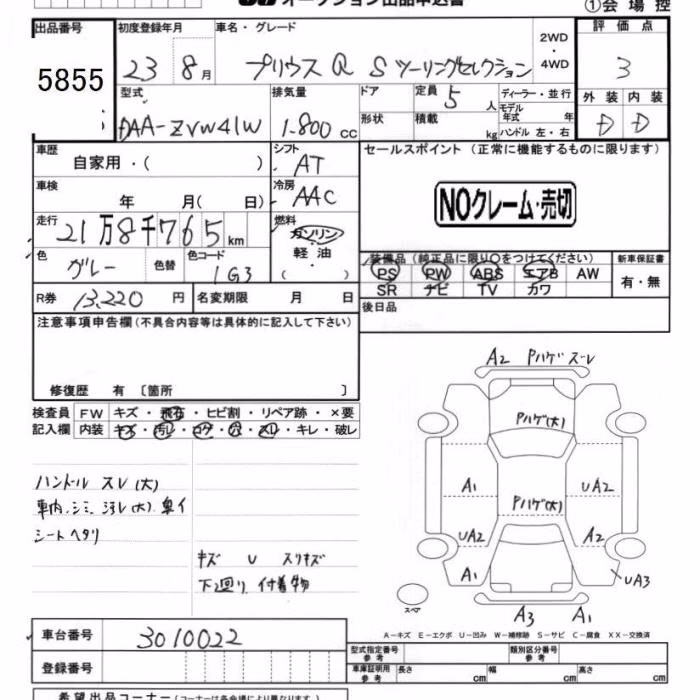 オークション出品申込書
①会場控
出品番号 初度登録年月 車名・グレード 評価点
5855 23 8月 プリウスα Sツーリングセレクション 2WD・4WD 3
型式 排気量 ドア 定員 5人 ディーラー・並行 外装 内装
DAA-ZVW41W 1.800cc 形状 積載 kg モデル年式 年 ハンドル 左・右 D D
車歴 自家用・( ) シフト AT セールスポイント(正常に機能するものに限ります)
車検 年 月( 日) 冷房 AAC NOクレーム・売切
走行 21万8千765km 燃料 ガソリン・軽油・( )
色 グレー 色替 色コード 1G3 装備品(純正品に限り○をつけてください) 新車保証書
PS PW ABS エアB AW 有・無
SR ナビ TV カワ
R券 13,220円 名変期限 月 日 後日品
注意事項申告欄(不具合内容等は具体的に記入して下さい)
修復歴 有 〔箇所 〕
検査員 FW キズ・飛石・ヒビ割・リペア跡・×要
記入欄 内装 キズ・汚レ・コゲ・穴・スレ・キレ・破レ
A2 Pハゲ ズレ
Pハゲ(大)
ハンドル スレ(大) A1 Pハゲ(大) UA2
車内、シミ、ヨゴレ(大)、臭イ
シートヘタリ UA2 A2
キズ U スリキズ
下廻り、付着物 A1 UA3
スペア A3 A1
A-キズ E-エクボ U-凹み W-補修跡 S-サビ C-腐食 XX-交換済
車台番号 3010022 型式指定番号 参考 類別区分番号 参考
登録番号 車庫証明用 参考 長さ cm 幅 cm 高さ cm
希望出品コーナー(コーナーは各会場により異なります)